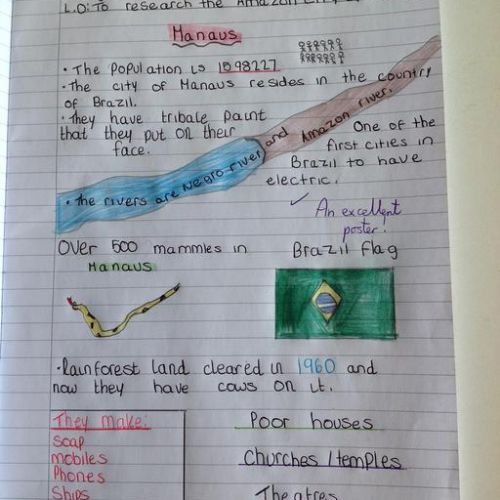 L.O: To research the Amazon City
Manaus
• The Population is 1598227
• The city of Manaus resides in the country
of Brazil.
• They have tribale paint
that they put on their
face.
One of the
first cities in
Brazil to have
electric.
• The rivers are Negro river and Amazon river.
✓ An excellent
poster.
Over 500 mammles in
Manaus
Brazil flag
• Rainforest land cleared in 1960 and
now they have cows on it.
They make:
soap
mobiles
Phones
Ships
Poor houses
Churches / temples
Theatres